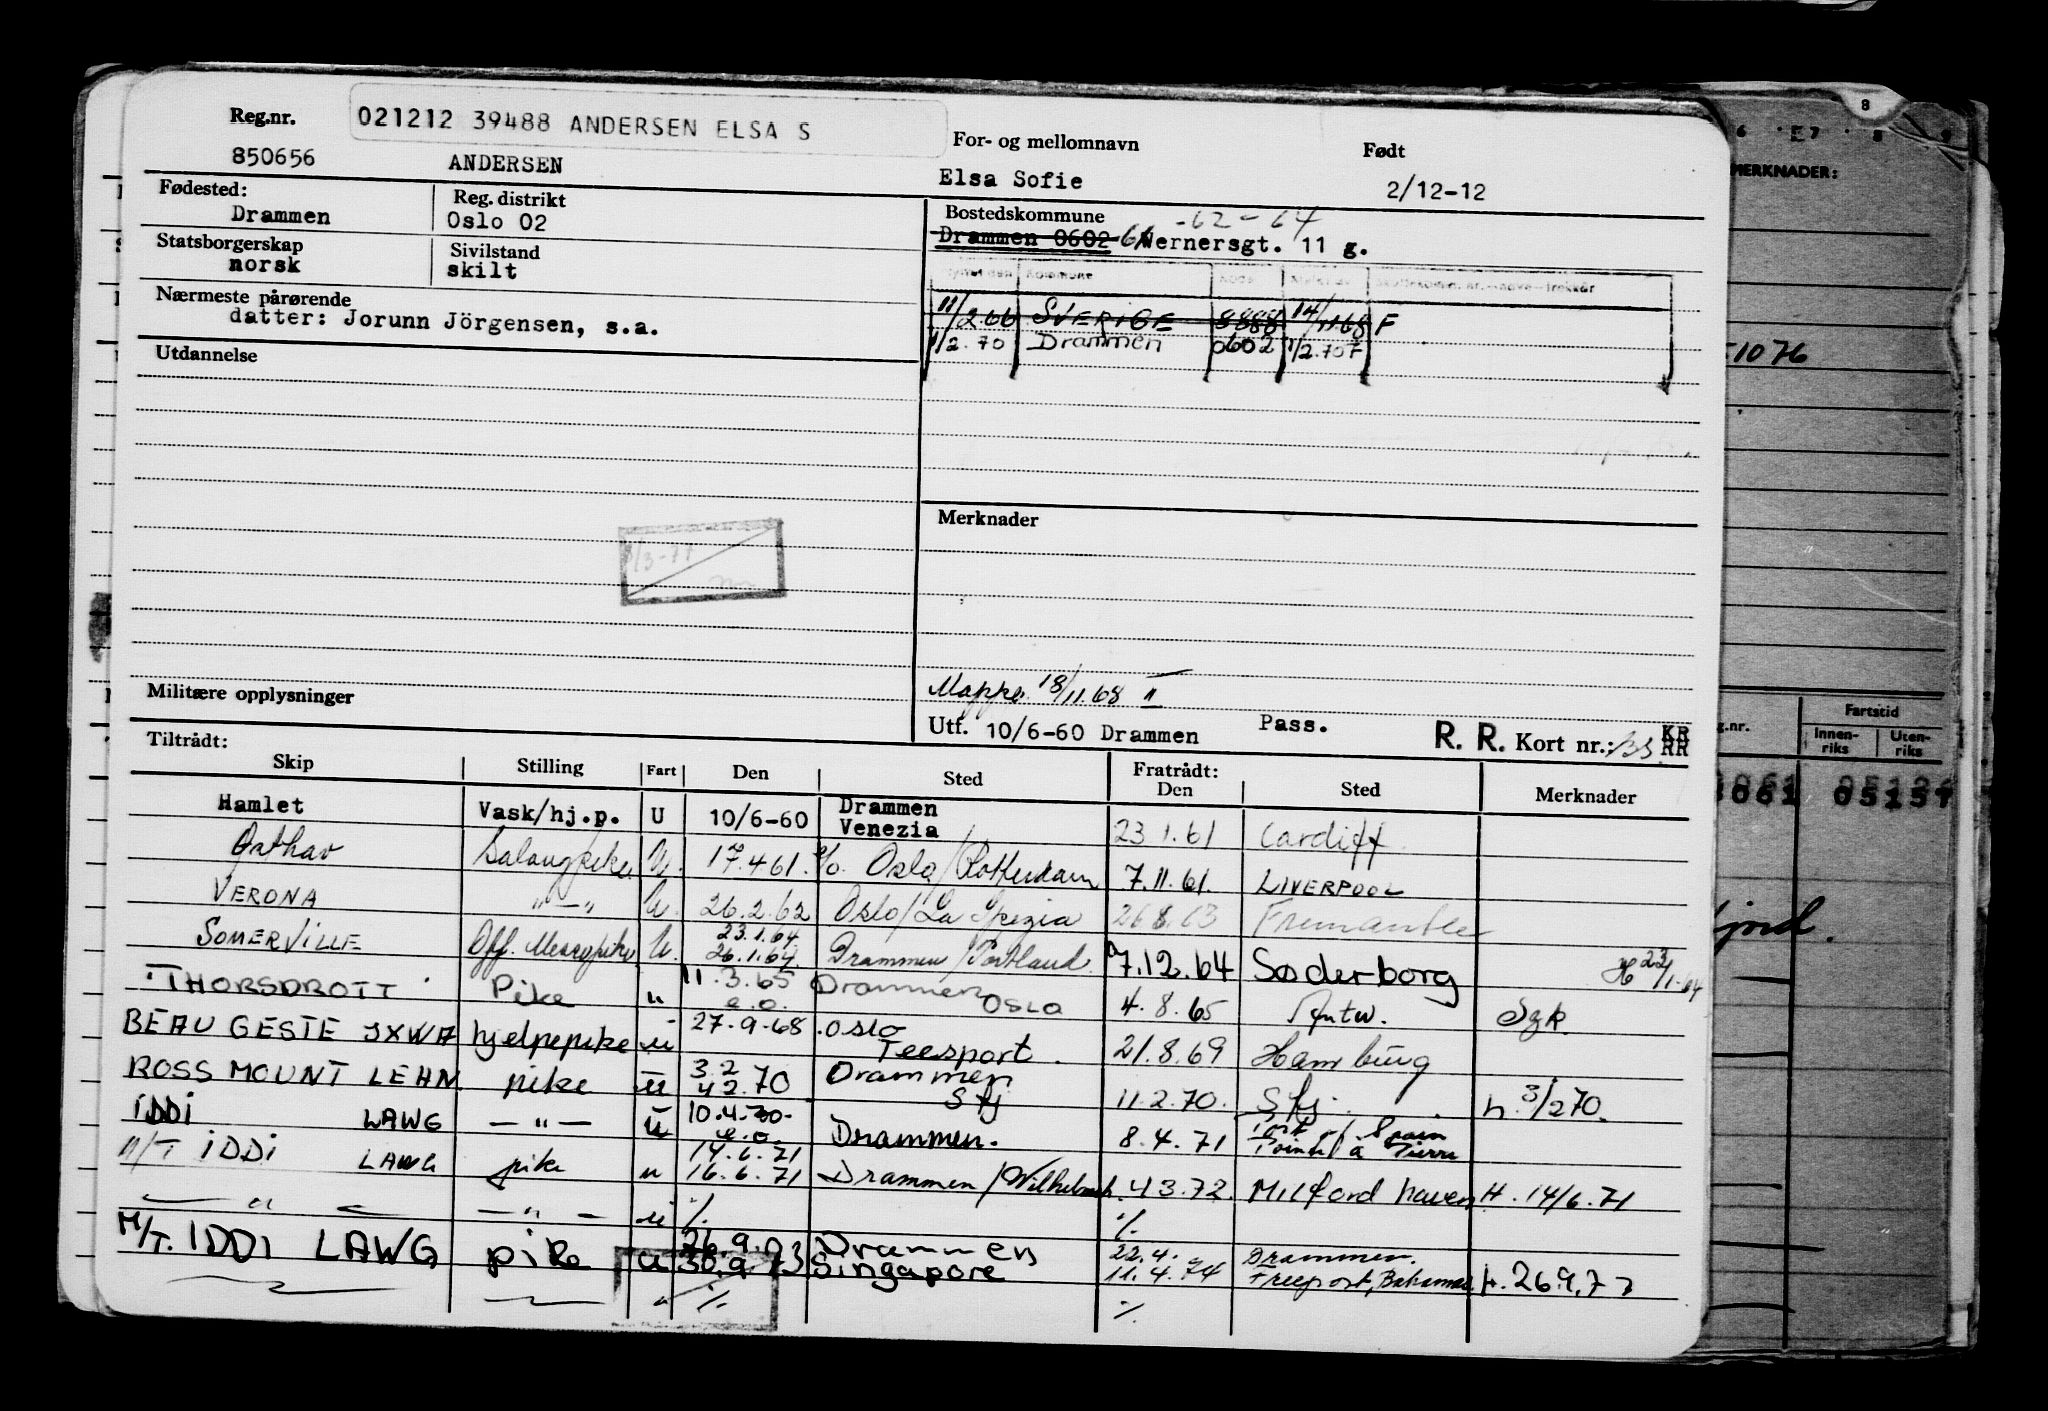 Reg.nr.
021212 39488 ANDERSEN ELSA S
For- og mellomnavn
Født
850656
ANDERSEN
Elsa Sofie
2/12-12
Fødested:
Drammen
Reg. distrikt
Oslo 02
Bostedskommune
-62-64
Drammen 0602 Wernersgt. 11 g.
Statsborgerskap
norsk
Sivilstand
skilt
Nærmeste pårørende
datter: Jorunn Jörgensen, s.a.
Kommune
11/2.66 SVERIGE 8888 14/11.68 F
1/2.70 Drammen 0602 1/2.70 F
Utdannelse
Merknader
Militære opplysninger
Mappe 18/11.68
Utf. 10/6-60 Drammen
Pass.
R. R. Kort nr.:
KR
RR
Tiltrådt:
Fratrådt:
Skip Stilling Fart Den Sted Den Sted Merknader
Hamlet Vask/hj.p. U 10/6-60 Drammen Venezia 23.1.61 Cardiff
Salongpike U. 17.4.61. Oslo/Rotterdam 7.11.61. LIVERPOOL
VERONA -"- U. 26.2.62 Oslo/La Spezia 26.8.63 Fremantle
SOMERVILLE Off. Messepike U. 23.1.64 26.1.64. Drammen/Portland 7.12.64 Søderborg H 23/1-64
THORSDROTT Pike u 11.3.65 e.o. Drammen OSLO 4.8.65 Antw. Sgk
BEAU GESTE JXWA hjelpepike u 27.9.68 OSLO Teesport 21.8.69 Hamburg
ROSS MOUNT LEHN pike u 3.2 4.2.70 Drammen Sfj 11.2.70. Sfj. h. 3/2 70.
IDDI LAWG -"- u 10.4.70 e.o. Drammen. 8.4.71 Port of Spain Pointe à Pierre
M/T IDDI LAWG pike u 14.6.71 16.6.71 Drammen/Wilhelmsh. 4.3.72. Milford haven H. 14/6.71
-"- -"- u % %
M/T. IDDI LAWG pike u 26.9.73 30.9.73 Drammen Singapore 22.4. 11.4.74 Drammen. Freeport, Bahamas H. 26.9.73
" % %
8
MERKNADER:
1076
Fartstid
Innen-
riks
Uten-
riks